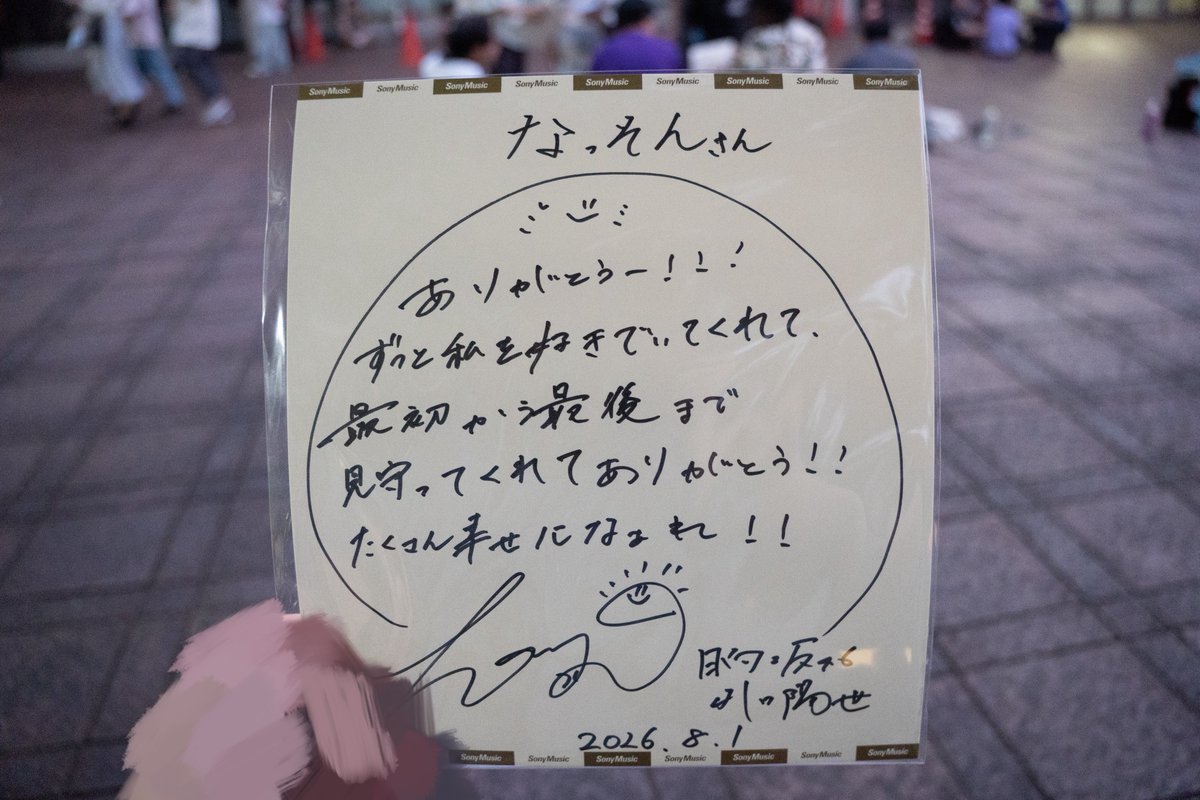 SonyMusic SonyMusic SonyMusic SonyMusic SonyMusic SonyMusic SonyMusic SonyMusic SonyMusic
なっそんさん
ありがとうー!!!
ずっと私を好きでいてくれて、
最初から最後まで
見守ってくれてありがとう!!
たくさん幸せになぁれ!!
陽世
2026.8.1
SonyMusic SonyMusic SonyMusic SonyMusic SonyMusic SonyMusic SonyMusic